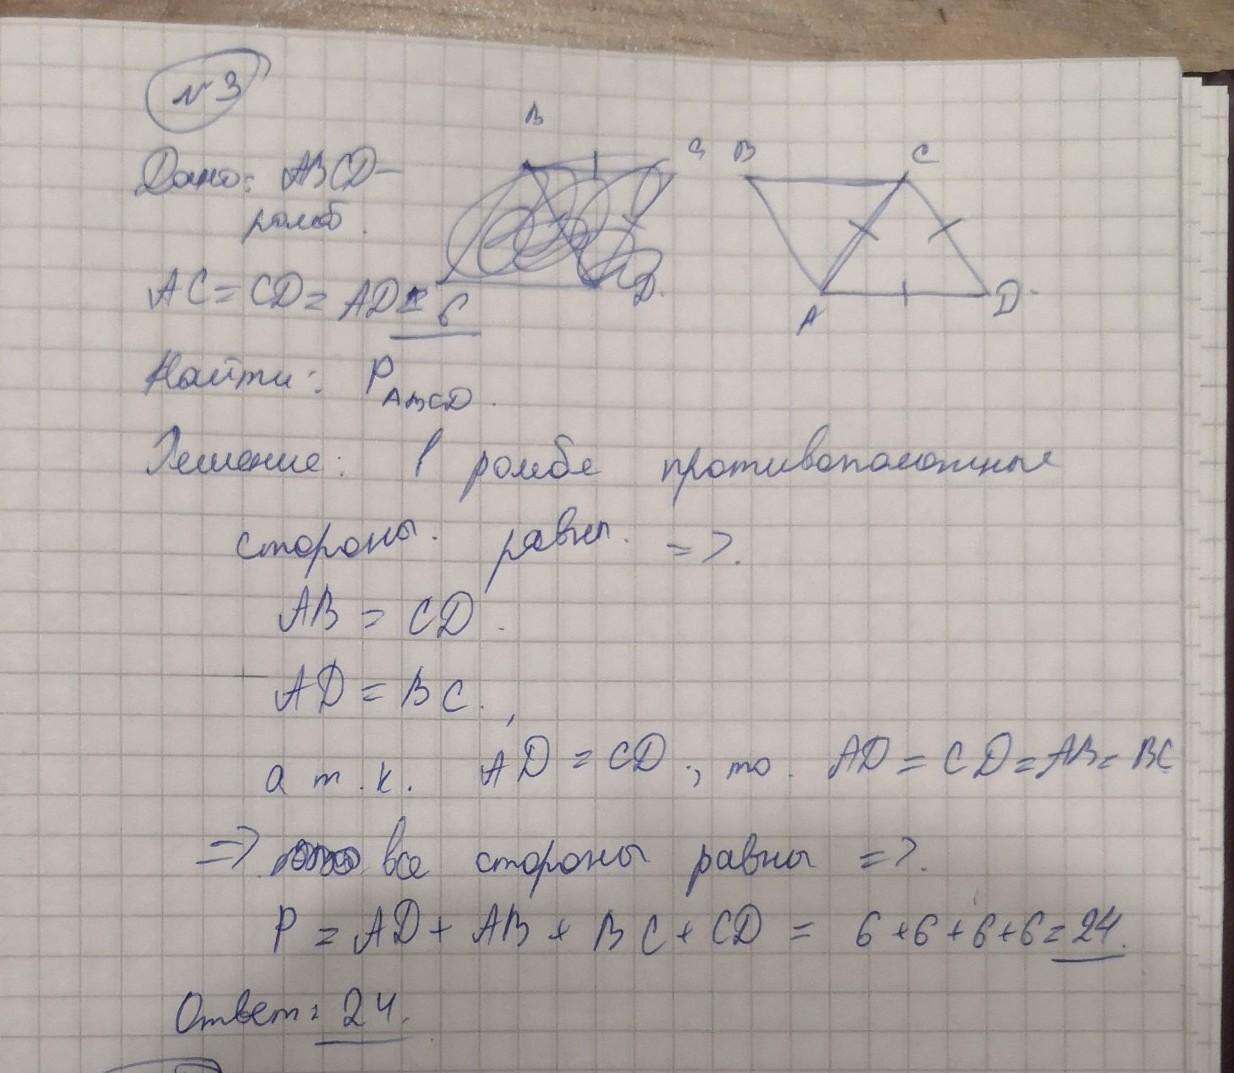 №3
Дано: ABCD-
ромб.
B
C
B
C
D.
A
D.
AC = CD = AD = 6
Найти: P ABCD.
Решение: В ромбе противоположные
стороны. равны. =>.
AB = CD.
AD = BC.,
а т.к. AD = CD., то. AD = CD = AB = BC
=> все стороны равны =>.
P = AD + AB + BC + CD = 6+6+6+6=24.
Ответ: 24.